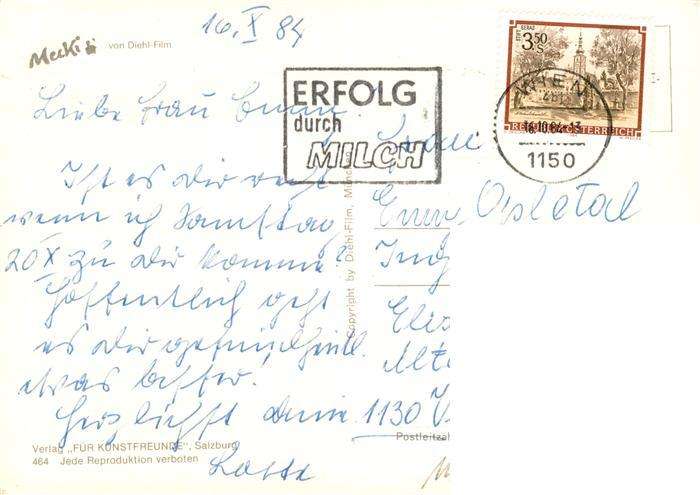 16. X 84
Mecki
von Diehl-Film
Liebe Frau Emmi!
ERFOLG
durch
MILCH
3.50
S
STIFT GERAS
REPUBLIK ÖSTERREICH
WIEN
16.10.84-13
1150
Ist es dir recht
wenn ich Samstag
20 X zu dir komme?
Hoffentlich geht
es dir gesundheitl.
etwas besser!
Herzlichst deine
Lotte
Frau
Emmi Opletal
1130
Postleitzahl
Copyright by Diehl-Film, München
Verlag „FÜR KUNSTFREUNDE", Salzburg
464 Jede Reproduktion verboten